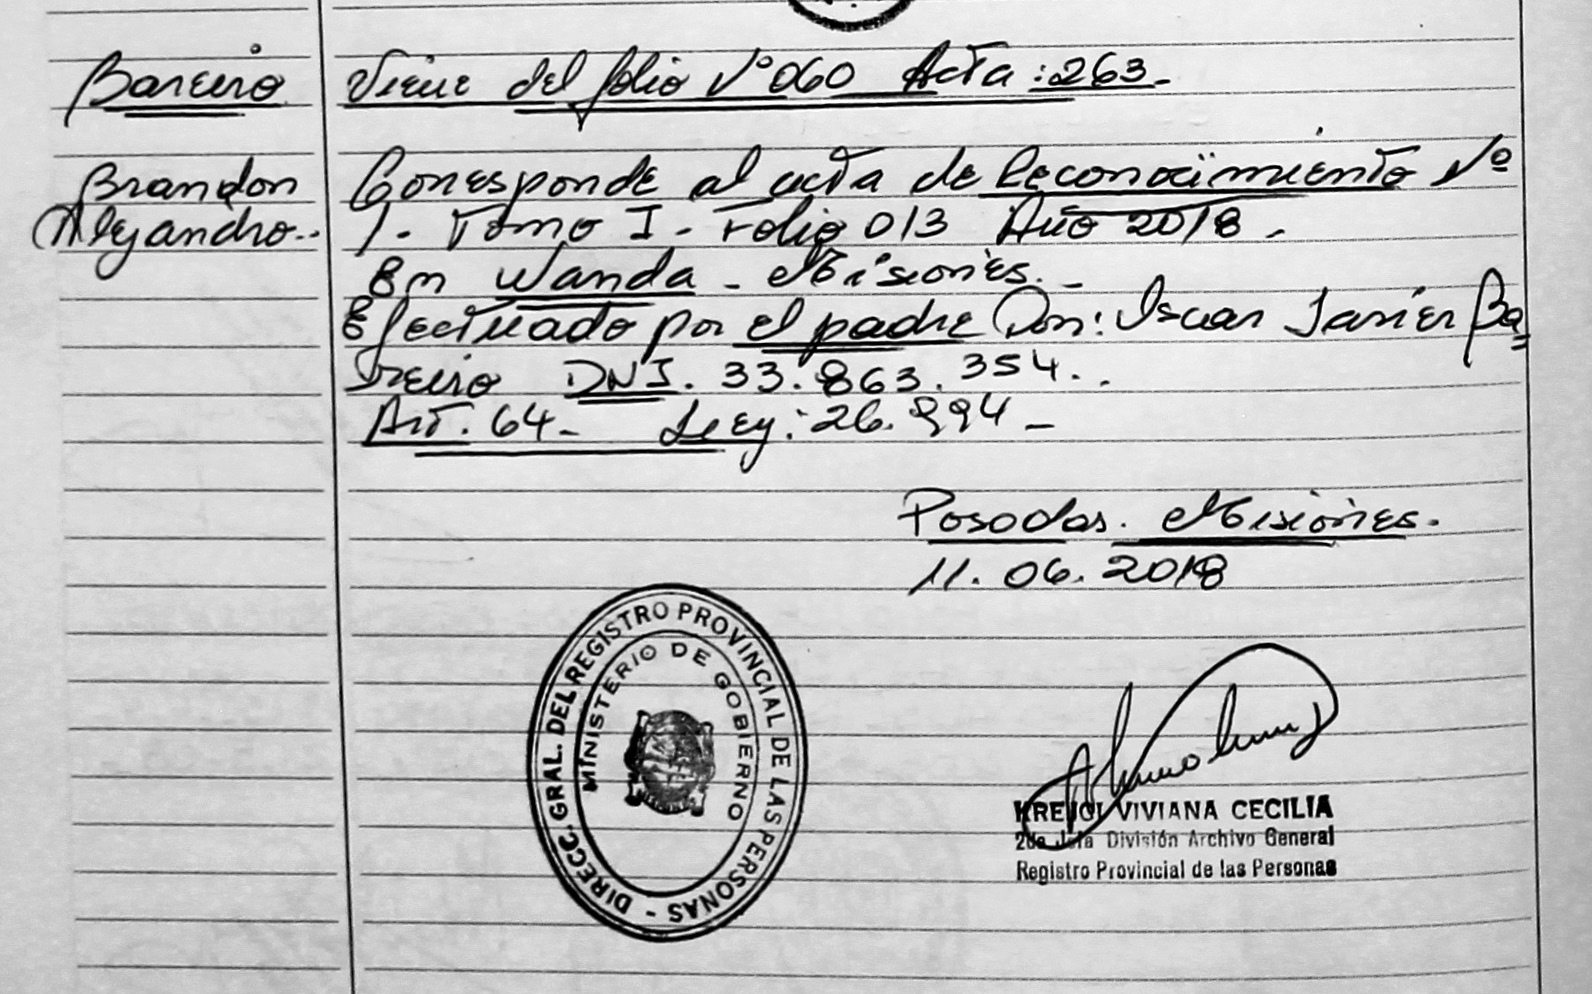 Bareiro
Viene del folio Nº 060 Acta: 263-
Brandon
Alejandro..
Corresponde al acta de Reconocimiento Nº
1. Tomo I - Folio 013 Año 2018.
En Wanda - Misiones.-
Efectuado por el padre Don: Oscar Javier Ba=
reiro DNI. 33.863.354..
Art. 64- Ley: 26.994-
Posadas. Misiones.
11.06.2018
DIRECC. GRAL. DEL REGISTRO PROVINCIAL DE LAS PERSONAS -
MINISTERIO DE GOBIERNO
KREJCI VIVIANA CECILIA
2da Jefa División Archivo General
Registro Provincial de las Personas